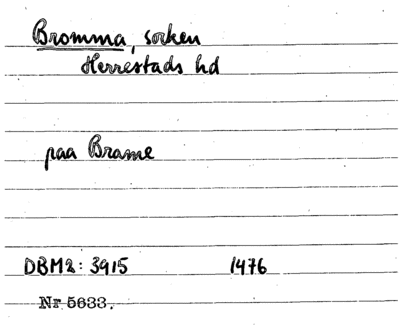 Bromma, socken
Herrestads hd
paa Brame
DBM2: 3915 1476
Nr 5633.